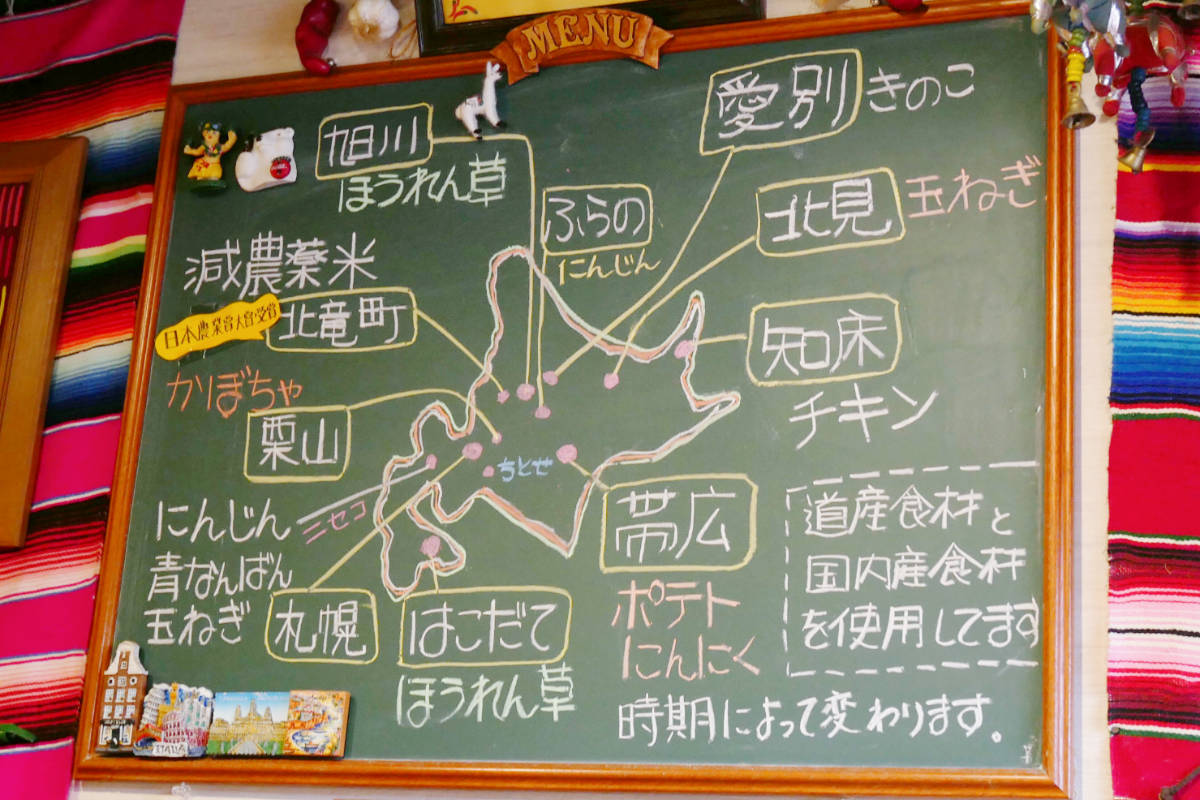 MENU
旭川
ほうれん草
愛別 きのこ
ふらの
にんじん
北見 玉ねぎ
減農薬米
北竜町
日本農業賞大賞受賞
かぼちゃ
栗山
知床
チキン
ちとせ
ニセコ
にんじん
青なんばん
玉ねぎ
札幌
はこだて
ほうれん草
帯広
ポテト
にんにく
道産食材と
国内産食材
を使用してます
時期によって変わります。